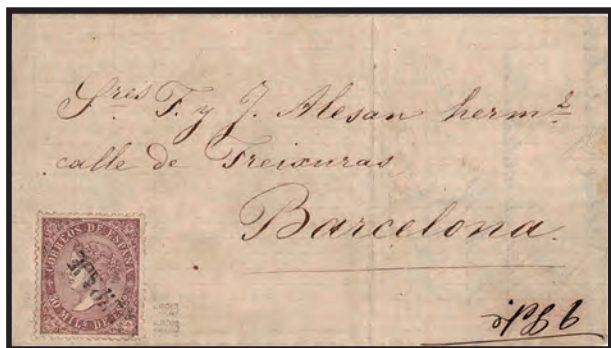 Sres F. y J. Alesan herms
calle de Freixuras
Barcelona.
CORREOS DE ESPAÑA
50 MILS DE E